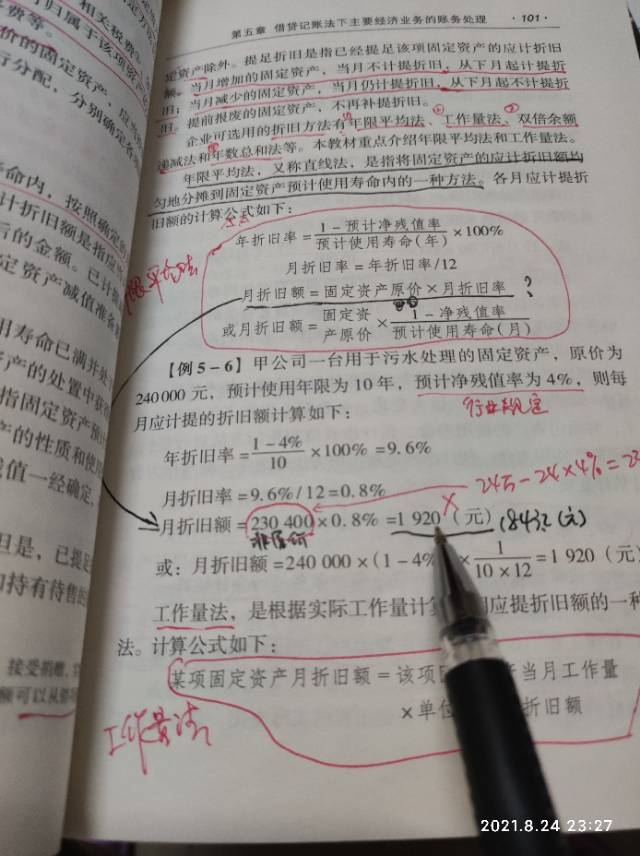 第五章 借贷记账法下主要经济业务的账务处理 ·101·
定资产除外。提足折旧是指已经提足该项固定资产的应计折旧
额。当月增加的固定资产，当月不计提折旧，从下月起计提折
旧；当月减少的固定资产，当月仍计提折旧，从下月起不计提折
旧。提前报废的固定资产，不再补提折旧。
企业可选用的折旧方法有年限平均法、工作量法、双倍余额
递减法和年数总和法等。本教材重点介绍年限平均法和工作量法。
年限平均法，又称直线法，是指将固定资产的应计折旧额均
匀地分摊到固定资产预计使用寿命内的一种方法。各月应计提折
旧额的计算公式如下：
年折旧率=1-预计净残值率/预计使用寿命(年)×100%
月折旧率=年折旧率/12
月折旧额=固定资产原价×月折旧率 ?
或月折旧额=固定资产原价×1-净残值率/预计使用寿命(月)
【例5-6】甲公司一台用于污水处理的固定资产，原价为
240 000元，预计使用年限为10年，预计净残值率为4%，则每
行业规定
月应计提的折旧额计算如下：
年折旧率=1-4%/10×100%=9.6%
月折旧率=9.6%/12=0.8%
24万-24×4%=23
月折旧额=230 400×0.8%=1 920（元）
非原价
或：月折旧额=240 000×(1-4%)×1/10×12=1 920（元
工作量法，是根据实际工作量计 应提折旧额的一种
法。计算公式如下：
某项固定资产月折旧额=该项 当月工作量
×单位 折旧额
工作量法
年平均法
相关税费、
可归属于该项资产
费等。
价的固定资产，应
行分配，分别确定各
命内，按照确定的
计折旧额是指应
后的金额。已计
定资产减值准备
用寿命已满并处
产的处置中获
指固定资产预
产的性质和使
值一经确定，
但是，已提
和持有待售的
接受捐赠、
额可以从
2021.8.24 23:27